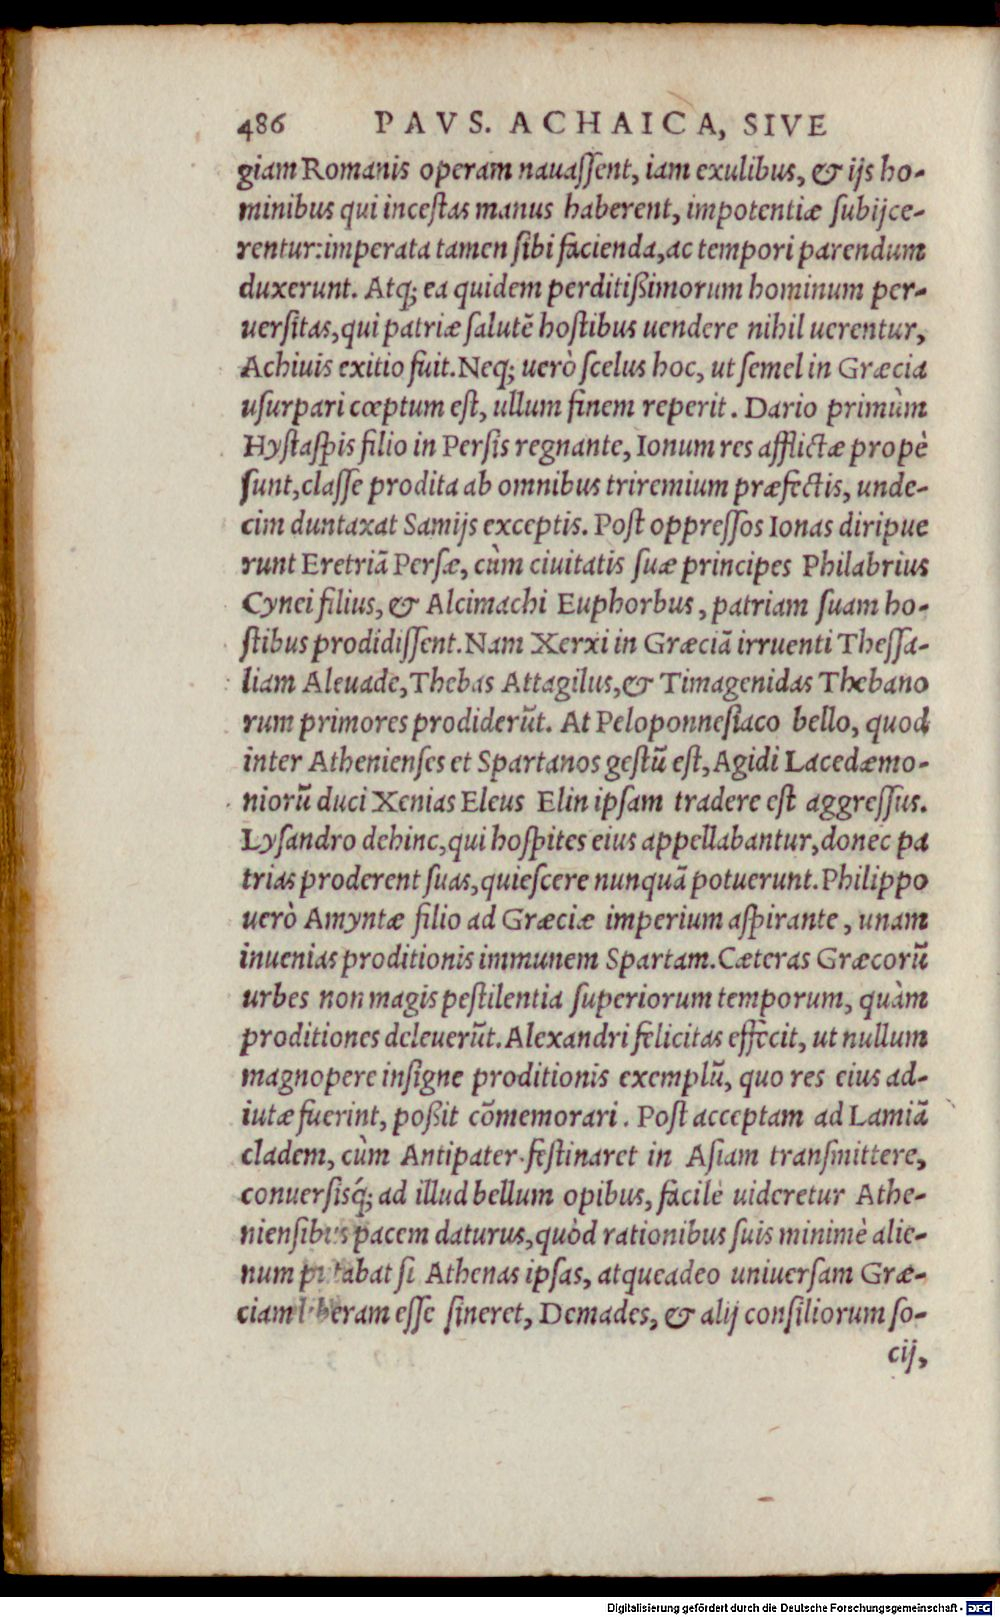 486 PAVS. ACHAICA, SIVE
giam Romanis operam nauaſſent, iam exulibus, & ijs ho-
minibus qui inceſtas manus haberent, impotentiæ ſubijce-
rentur: imperata tamen ſibi facienda, ac tempori parendum
duxerunt. Atq; ea quidem perditißimorum hominum per-
uerſitas, qui patriæ ſalutē hoſtibus uendere nihil uerentur,
Achiuis exitio fuit. Neq; uerò ſcelus hoc, ut ſemel in Græcia
uſurpari cœptum eſt, ullum finem reperit. Dario primùm
Hyſtaſpis filio in Perſis regnante, Ionum res afflictæ propè
ſunt, claſſe prodita ab omnibus triremium præfectis, unde-
cim duntaxat Samijs exceptis. Poſt oppreſſos Ionas diripue
runt Eretriā Perſæ, cùm ciuitatis ſuæ principes Philabrius
Cynei filius, & Alcimachi Euphorbus, patriam ſuam ho-
ſtibus prodidiſſent. Nam Xerxi in Græciā irruenti Theſſa-
liam Aleuade, Thebas Attagilus, & Timagenidas Thebano
rum primores prodiderūt. At Peloponneſiaco bello, quod
inter Athenienſes et Spartanos geſtū eſt, Agidi Lacedæmo-
niorū duci Xenias Eleus Elin ipſam tradere eſt aggreſſus.
Lyſandro dehinc, qui hoſpites eius appellabantur, donec pa
trias proderent ſuas, quieſcere nunquā potuerunt. Philippo
uerò Amyntæ filio ad Græciæ imperium aſpirante, unam
inuenias proditionis immunem Spartam. Cæteras Græcorū
urbes non magis peſtilentia ſuperiorum temporum, quàm
proditiones deleuerūt. Alexandri felicitas effecit, ut nullum
magnopere inſigne proditionis exemplū, quo res eius ad-
iutæ fuerint, poßit cōmemorari. Poſt acceptam ad Lamiā
cladem, cùm Antipater feſtinaret in Aſiam tranſmittere,
conuerſisq́; ad illud bellum opibus, facilè uideretur Athe-
nienſibus pacem daturus, quòd rationibus ſuis minimè alie-
num putabat ſi Athenas ipſas, atqueadeo uniuerſam Græ-
ciam liberam eſſe ſineret, Demades, & alij conſiliorum ſo-
cij,
Digitalisierung gefördert durch die Deutsche Forschungsgemeinschaft - DFG